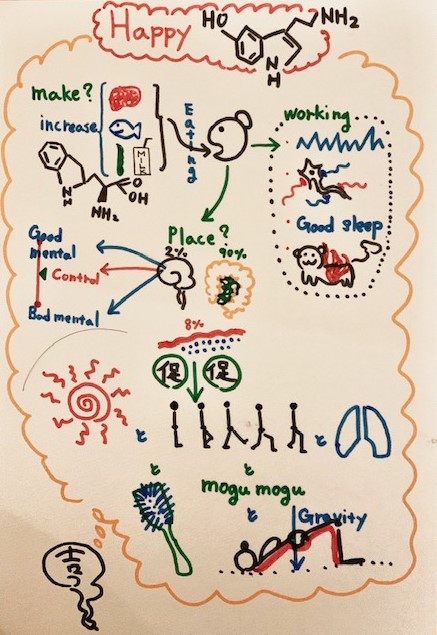 Happy
HO
NH₂
N
H
make?
increase
Eating
Milk
N
H
NH₂
O
OH
working
Good sleep
Place?
2%
90%
Good
mental
Control
Bad mental
8%
促 促
と
と
と
と
mogu mogu
と
Gravity